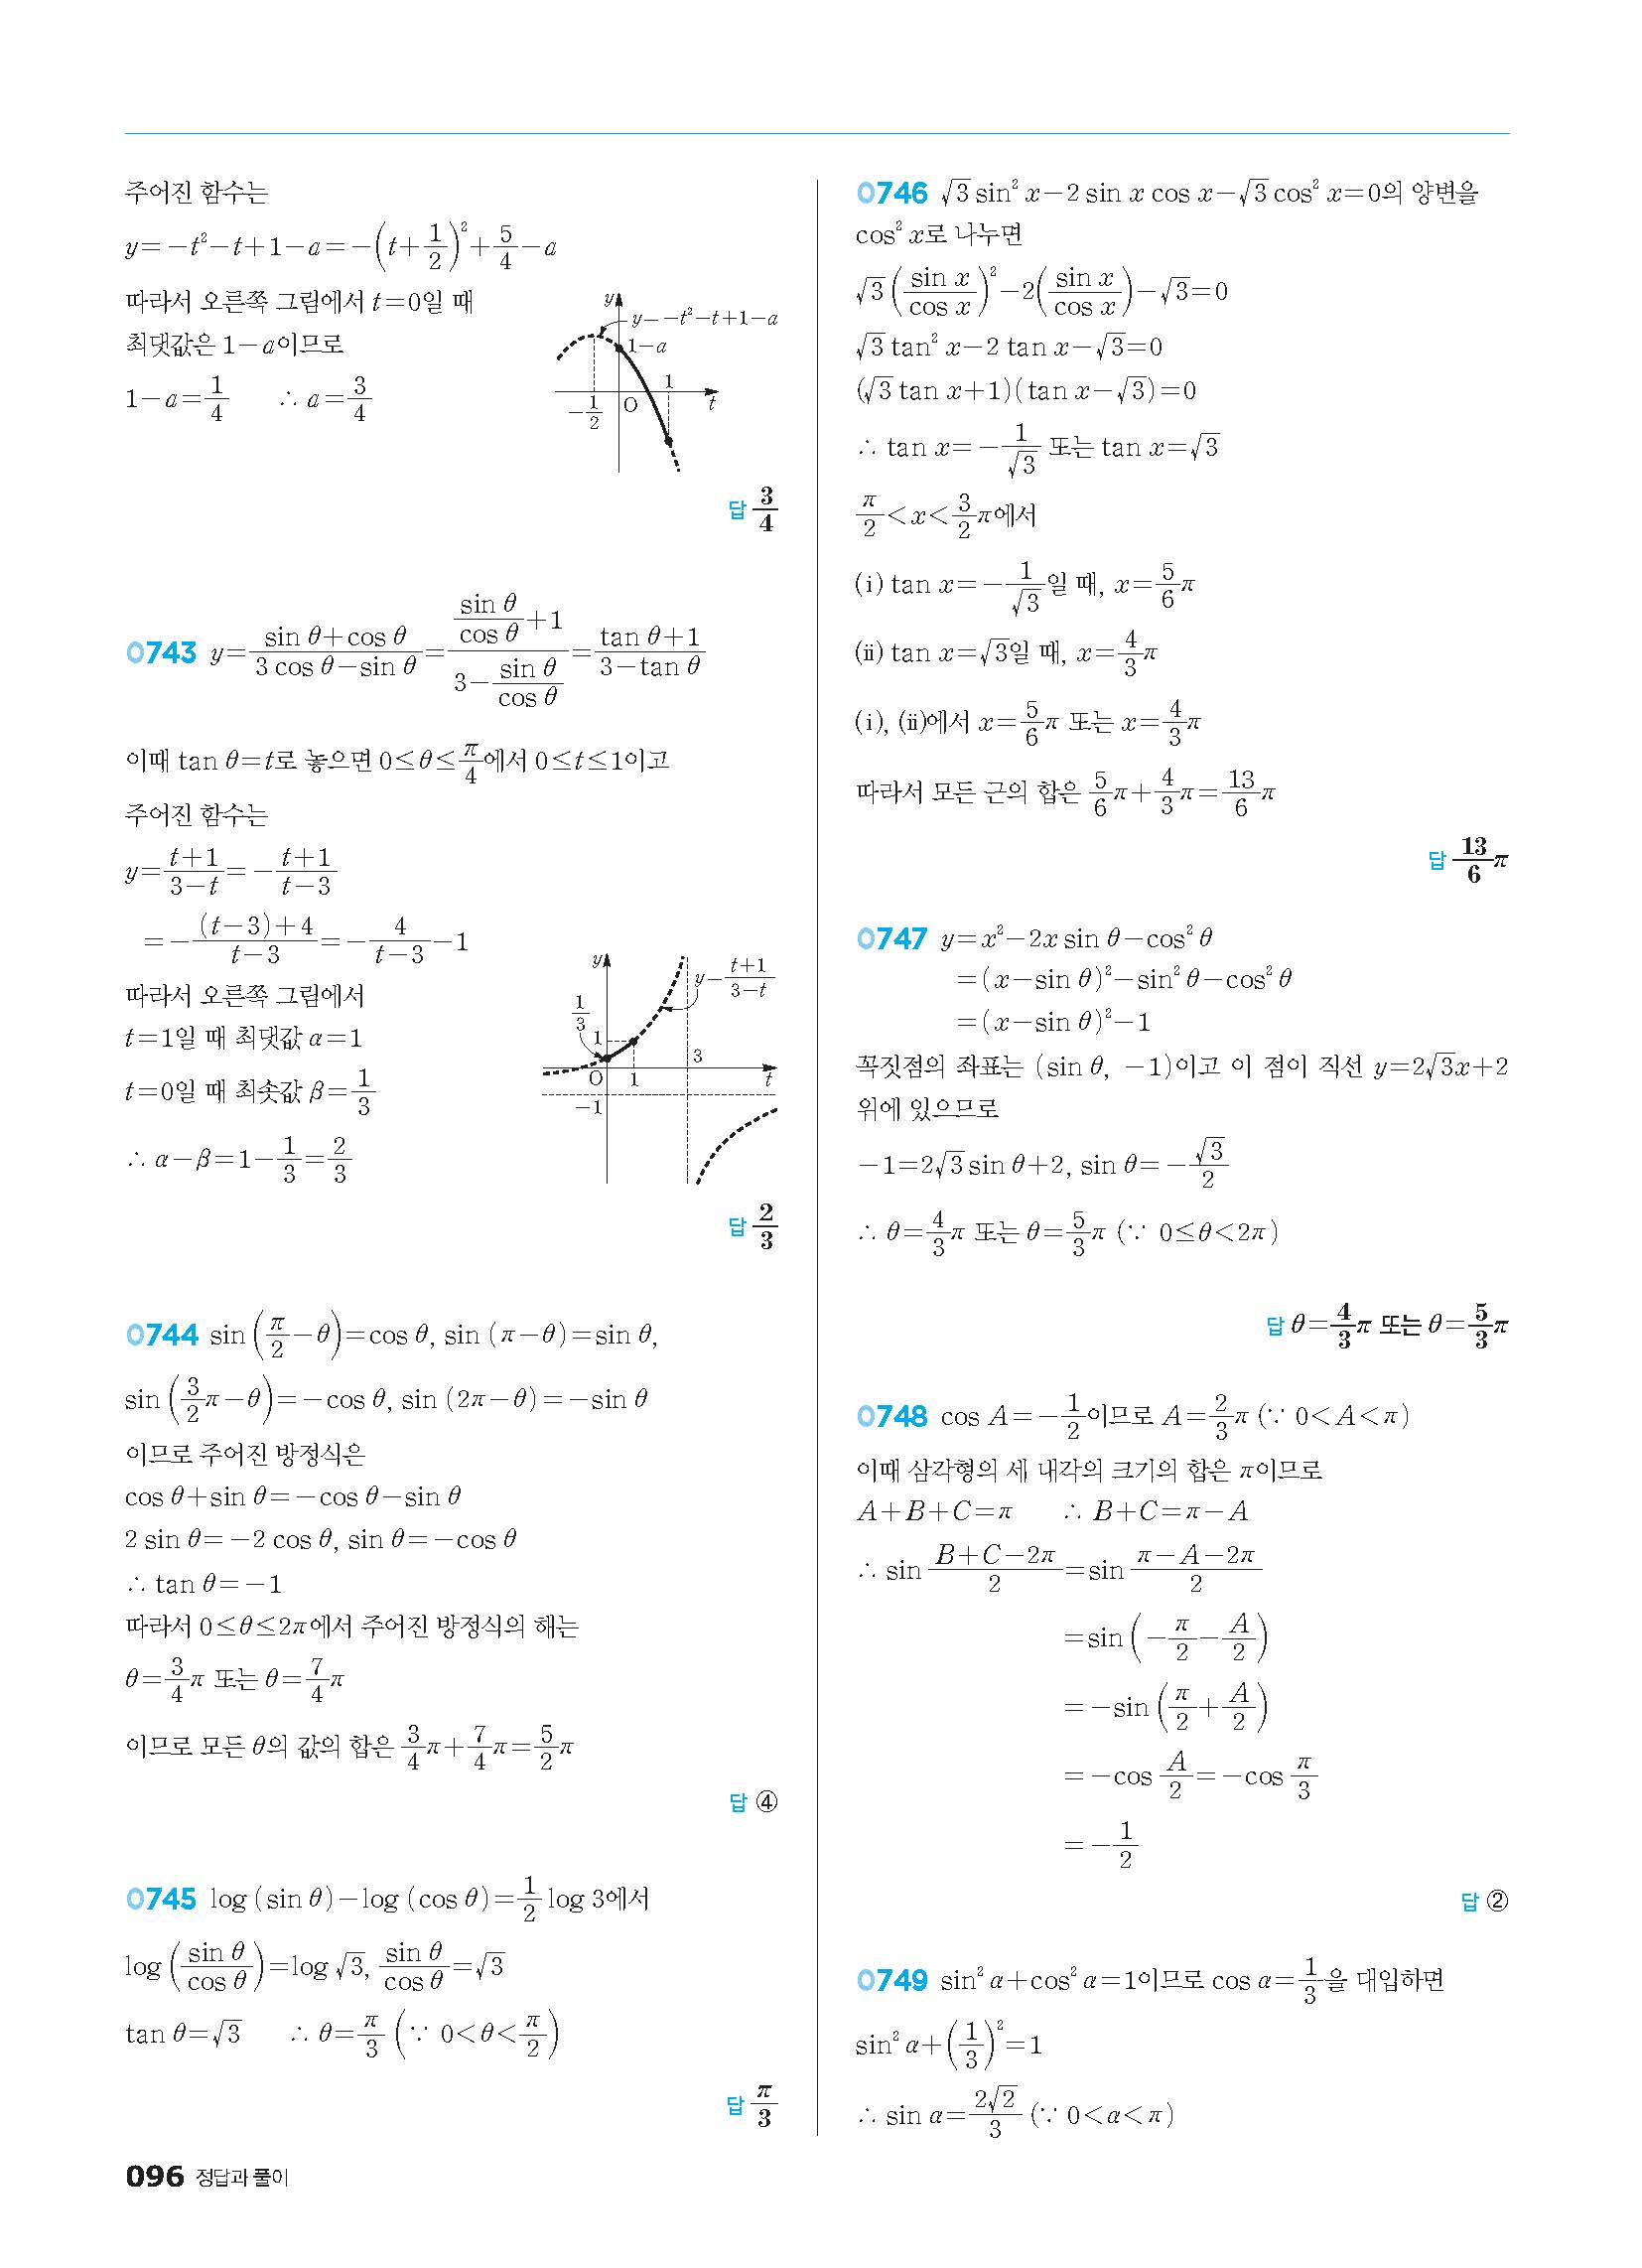 주어진 함수는
y=-t²-t+1-a=-(t+1/2)²+5/4-a
따라서 오른쪽 그림에서 t=0일 때
최댓값은 1-a이므로
1-a=1/4 ∴ a=3/4
y
y=-t²-t+1-a
1-a
1
-1/2
O
t
답 3/4
0743 y=(sin θ+cos θ)/(3 cos θ-sin θ)=(sin θ/cos θ+1)/(3-sin θ/cos θ)=(tan θ+1)/(3-tan θ)
이때 tan θ=t로 놓으면 0≤θ≤π/4에서 0≤t≤1이고
주어진 함수는
y=(t+1)/(3-t)=-(t+1)/(t-3)
=-((t-3)+4)/(t-3)=-4/(t-3)-1
따라서 오른쪽 그림에서
t=1일 때 최댓값 α=1
t=0일 때 최솟값 β=1/3
∴ α-β=1-1/3=2/3
y
y=(t+1)/(3-t)
1/3
1
3
O
1
t
-1
답 2/3
0744 sin(π/2-θ)=cos θ, sin (π-θ)=sin θ,
sin(3/2π-θ)=-cos θ, sin (2π-θ)=-sin θ
이므로 주어진 방정식은
cos θ+sin θ=-cos θ-sin θ
2 sin θ=-2 cos θ, sin θ=-cos θ
∴ tan θ=-1
따라서 0≤θ≤2π에서 주어진 방정식의 해는
θ=3/4π 또는 θ=7/4π
이므로 모든 θ의 값의 합은 3/4π+7/4π=5/2π
답 ④
0745 log (sin θ)-log (cos θ)=1/2 log 3에서
log(sin θ/cos θ)=log √3, sin θ/cos θ=√3
tan θ=√3 ∴ θ=π/3 (∵ 0<θ<π/2)
답 π/3
0746 √3 sin² x-2 sin x cos x-√3 cos² x=0의 양변을
cos² x로 나누면
√3(sin x/cos x)²-2(sin x/cos x)-√3=0
√3 tan² x-2 tan x-√3=0
(√3 tan x+1)(tan x-√3)=0
∴ tan x=-1/√3 또는 tan x=√3
π/2<x<3/2π에서
(ⅰ) tan x=-1/√3일 때, x=5/6π
(ⅱ) tan x=√3일 때, x=4/3π
(ⅰ), (ⅱ)에서 x=5/6π 또는 x=4/3π
따라서 모든 근의 합은 5/6π+4/3π=13/6π
답 13/6π
0747 y=x²-2x sin θ-cos² θ
=(x-sin θ)²-sin² θ-cos² θ
=(x-sin θ)²-1
꼭짓점의 좌표는 (sin θ, -1)이고 이 점이 직선 y=2√3x+2
위에 있으므로
-1=2√3 sin θ+2, sin θ=-√3/2
∴ θ=4/3π 또는 θ=5/3π (∵ 0≤θ<2π)
답 θ=4/3π 또는 θ=5/3π
0748 cos A=-1/2이므로 A=2/3π (∵ 0<A<π)
이때 삼각형의 세 내각의 크기의 합은 π이므로
A+B+C=π ∴ B+C=π-A
∴ sin (B+C-2π)/2=sin (π-A-2π)/2
=sin(-π/2-A/2)
=-sin(π/2+A/2)
=-cos A/2=-cos π/3
=-1/2
답 ②
0749 sin² α+cos² α=1이므로 cos α=1/3을 대입하면
sin² α+(1/3)²=1
∴ sin α=2√2/3 (∵ 0<α<π)
096 정답과 풀이